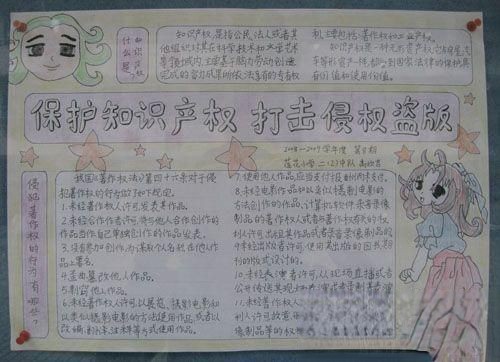 知识产权是什么呢?
知识产权,是指公民、法人或者其
他组织对其在科学技术和文学艺术
等领域内,主要基于脑力劳动创造
完成的智力成果所依法享有的专有权
利,主要包括著作权和工业产权。
知识产权是一种无形资产权,它与房屋、汽
车等形资产一样,都受到国家法律的保护,具
有价值和使用价值。
保护知识产权 打击侵权盗版
2008-2009学年度 第8期
莲花小学 二(2)中队
侵犯著作权的行为有哪些?
我国《著作权法》第四十六条对于侵
犯著作权的行为做了如下规定。
1.未经著作权人许可,发表其作品。
2.未经合作作者许可,将与他人合作创作的
作品当作自己单独创作的作品发表。
3.没有参加创作,为谋取个人名利,在他人作
品上署名。
4.歪曲、篡改他人作品。
5.剽窃他人作品。
6.未经著作权人许可,以展览、摄影电影和
以类似摄影电影的方法使用作品,或者以
改编、翻译、注释等方式使用作品。
7.使用他人作品,应当支付报酬而未支付。
8.未经电影作品和以类似摄影电影的
方法创作的作品、计算机软件、录音录像
制品的著作权人或者与著作权有关的权
利人许可,出租其作品或者录音录像制品的
9.未经出版者许可,使用其出版的图书、期
刊的版式设计的。
10.未经表演者许可,从现场直播或者
公开传送其现场表演,或者录制其表演
11.未经著作权人